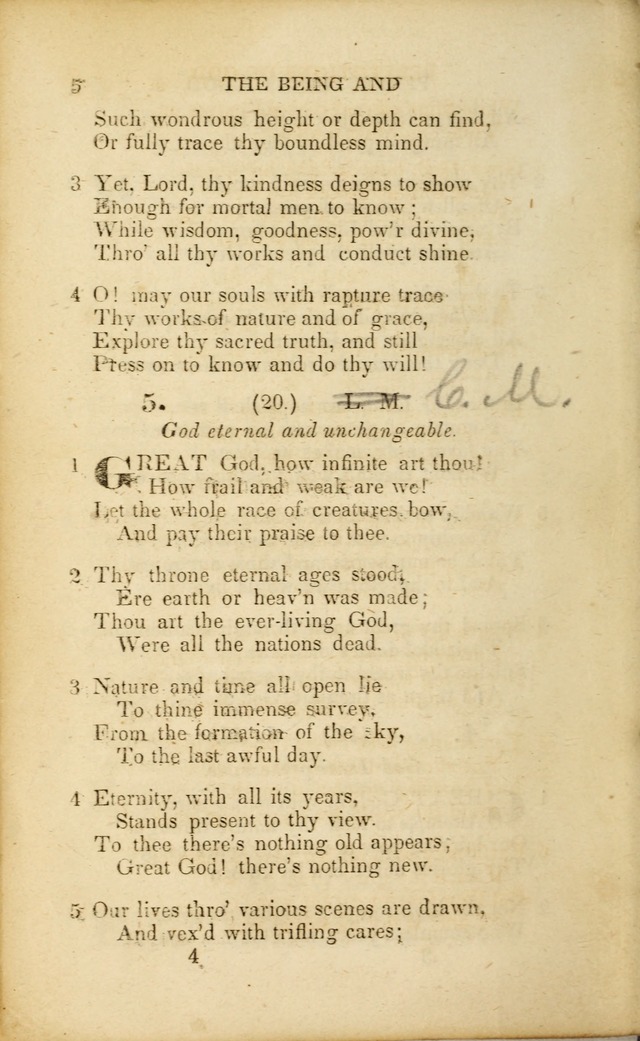 5 THE BEING AND
Such wondrous height or depth can find,
Or fully trace thy boundless mind.
3 Yet, Lord, thy kindness deigns to show
Enough for mortal men to know;
While wisdom, goodness, pow'r divine,
Thro' all thy works and conduct shine.
4 O! may our souls with rapture trace
Thy works of nature and of grace,
Explore thy sacred truth, and still
Press on to know and do thy will!
5. (20.) L. M. C. M.
God eternal and unchangeable.
1 GREAT God, how infinite art thou!
How frail and weak are we!
Let the whole race of creatures bow,
And pay their praise to thee.
2 Thy throne eternal ages stood,
Ere earth or heav'n was made;
Thou art the ever-living God,
Were all the nations dead.
3 Nature and time all open lie
To thine immense survey,
From the formation of the sky,
To the last awful day.
4 Eternity, with all its years,
Stands present to thy view.
To thee there's nothing old appears,
Great God! there's nothing new.
5 Our lives thro' various scenes are drawn,
And vex'd with trifling cares;
4